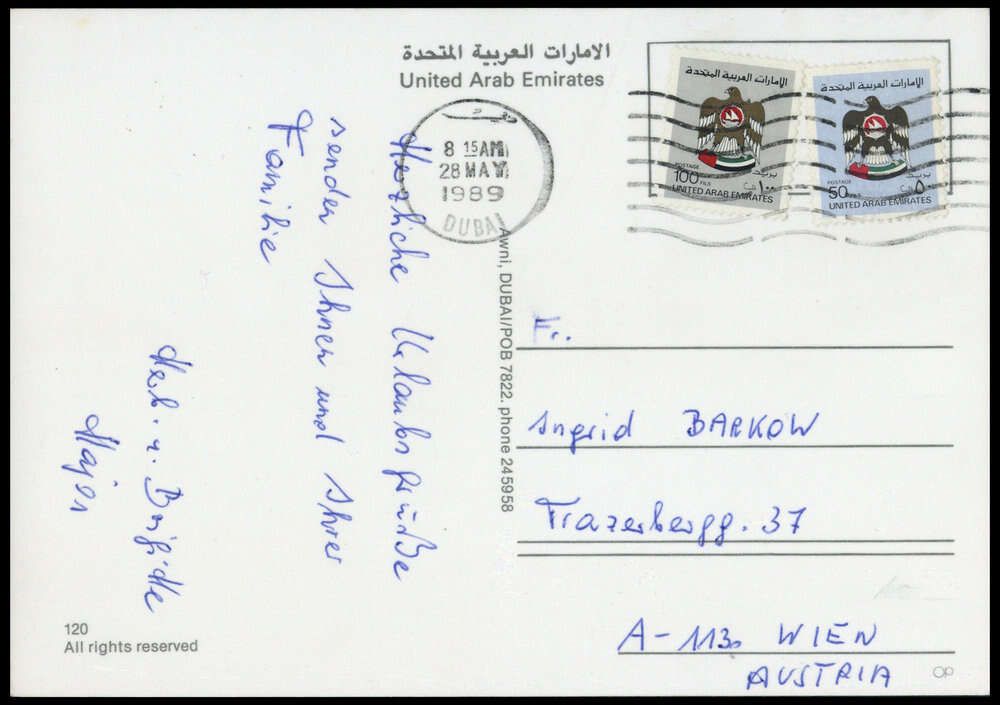 الامارات العربية المتحدة
United Arab Emirates
الامارات العربية المتحدة
POSTAGE
بريد
100 FILS
١٠٠
UNITED ARAB EMIRATES
الامارات العربية المتحدة
POSTAGE
بريد
50 FILS
٥٠
UNITED ARAB EMIRATES
8 15AM
28 MAY
1989
DUBAI
Herzliche Urlaubsgrüße
senden Ihnen und Ihrer
Familie
Herb. u. Brigitte
Majer
Awni, DUBAI/POB 7822. phone 245958
Fr.
Ingrid BARKOW
Trazerbergg. 37
A-1130 WIEN
AUSTRIA
120
All rights reserved